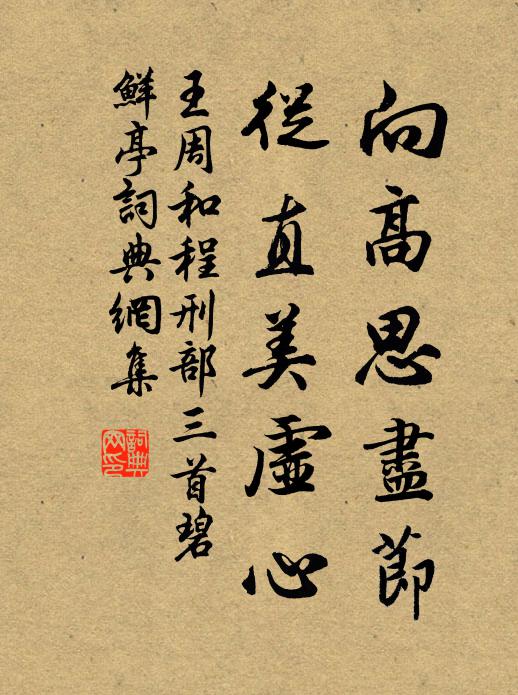 向高思盡節
從直美虛心
王周和程刑部三首碧
鮮亭詞典網集
詞典
网印